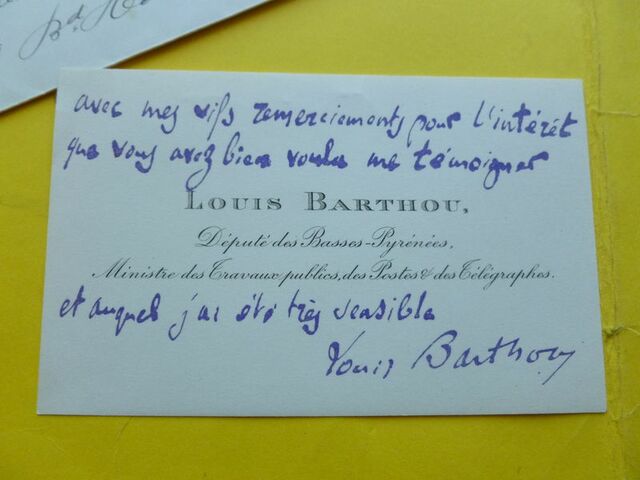 Bd.
avec mes vifs remerciements pour l'intérêt
que vous avez bien voulu me témoigner
LOUIS BARTHOU,
Député des Basses-Pyrénées,
Ministre des Travaux publics, des Postes & des Télégraphes.
et auquel j'ai été très sensible
Louis Barthou